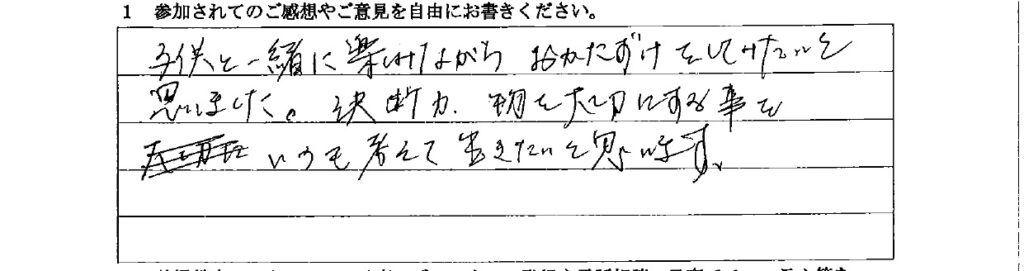 1 参加されてのご感想やご意見を自由にお書きください。
子供と一緒に楽しみながら おかたずけをしてみたいと
思いました。決断力、物を大切にする事を
いつも考えて生きたいと思います。